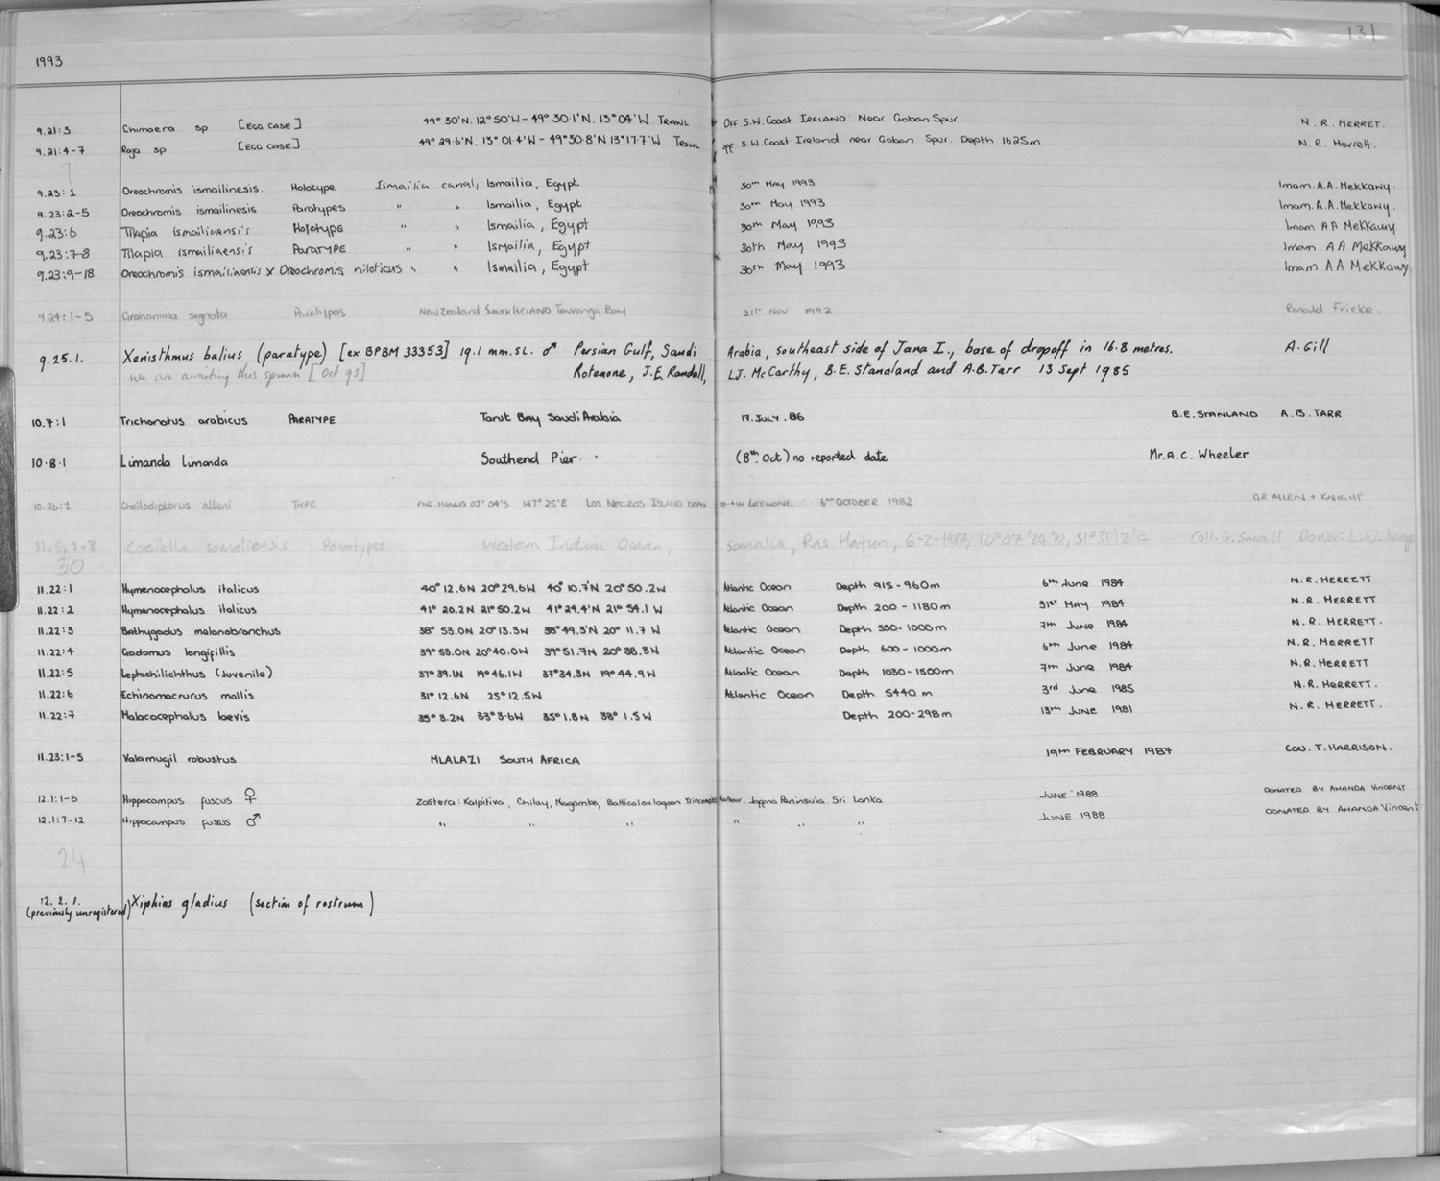 131
1993
9.21:3 Chimaera sp [EGG CASE] 49° 30'N. 12° 50'W - 49° 30.1'N. 13° 04'W. TRAWL OFF S.W. Coast IRELAND Near Goban Spur N. R. MERRET.
9.21:4-7 Raja sp [EGG CASE] 49° 29.6'N. 13° 01.4'W - 49° 30.8'N 13° 17.7'W Trawl off S.W. Coast Ireland near Goban Spur. Depth 1625m N. R. Merrett.
7
9.23:1 Oreochromis ismailinesis. Holotype Ismailia canal, Ismailia, Egypt 30th May 1993 Imam. A.A. Mekkawy.
9.23:2-5 Oreochromis ismailinesis Paratypes " " Ismailia, Egypt 30th May 1993 Imam. A.A. Mekkawy.
9.23:6 Tilapia Ismailiaensis Holotype " " Ismailia, Egypt 30th May 1993 Imam A A Mekkawy
9.23:7-8 Tilapia ismailiaensis PARATYPE " " Ismailia, Egypt 30th May 1993 Imam A A Mekkawy
9.23:9-18 Oreochromis ismailinensis x Oreochromis niloticus " " Ismailia, Egypt 30th May 1993 Imam A A Mekkawy
9.24:1-5 Grahamina signata Paratypes New Zealand South ISLAND Tauranga Bay 21st Nov 1992 Ronald Fricke.
9.25.1. Xenisthmus balius (paratype) [ex BPBM 33353] 19.1 mm.SL. ♂ Persian Gulf, Saudi Arabia, southeast side of Jana I., base of dropoff in 16.8 metres. A. Gill
we are awaiting this specimen [Oct 93] Rotenone, J.E. Randall, L.J. McCarthy, B.E. Stanaland and A.B. Tarr 13 Sept 1985
10.7:1 Trichonotus arabicus PARATYPE Tarut Bay Saudi Arabia 17. JULY. 86 B.E. STANLAND A.B. TARR
10.8.1 Limanda limanda Southend Pier. (8th. Oct) no reported date Mr. A.C. Wheeler
10.26:1 Cheilodipterus alleni TYPE PNG. MANUS 02° 04'S 147° 25'E LOS NEGROS ISLAND 6th OCTOBER 1982 GR ALLEN + KNIGHT
11.5.1-3 Cociella somaliensis Paratypes Western Indian Ocean, Somalia, Ras Hafun, 6-2-1987, 10°07'24"N, 51°31'2"E Coll. G. Small Donor: L.W. Knapp
30
11.22:1 Hymenocephalus italicus 40° 12.6N 20° 29.6W 40° 10.7'N 20° 50.2W Atlantic Ocean Depth 915-960m 6th June 1984 N. R. MERRETT
11.22:2 Hymenocephalus italicus 41° 26.2N 21° 50.2W 41° 24.4'N 21° 54.1 W Atlantic Ocean Depth 200 - 1180m 31st May 1984 N. R. MERRETT
11.22:3 Bathygadus melanobranchus 38° 53.0N 20° 13.3W 38° 49.3'N 20° 11.7 W Atlantic Ocean Depth 550-1000m 7th June 1984 N. R. MERRETT.
11.22:4 Gadomus longifillis 39° 53.0N 20° 40.0W 39° 51.7N 20° 38.3W Atlantic Ocean Depth 600-1000m 6th June 1984 N. R. MERRETT
11.22:5 Leptochilichthus (Juvenile) 37° 39.1N 19° 46.1W 37° 34.3N 19° 44.9 W Atlantic Ocean Depth 1030-1500m 7th June 1984 N. R. MERRETT
11.22:6 Echinomacrurus mollis 31° 12.6N 25° 12.5W Atlantic Ocean Depth 5440 m 3rd June 1985 N. R. MERRETT.
11.22:7 Malacocephalus laevis 35° 3.2N 33° 3.6W 35° 1.8N 33° 1.5W Depth 200-298m 13th June 1981 N. R. MERRETT.
11.23:1-5 Valamugil robustus MLALAZI SOUTH AFRICA 19th FEBRUARY 1987 COLL. T. HARRISON.
12.1:1-6 Hippocampus fuscus ♀ Zostera: Kalpitiya, Chilaw, Negombo, Batticaloa lagoon Trincomalee Harbour. Jaffna Peninsula. Sri Lanka JUNE 1988 DONATED BY AMANDA VINCENT
12.1:7-12 Hippocampus fuscus ♂ " " " " " " JUNE 1988 DONATED BY AMANDA Vincent
24
12. 2. 1. Xiphias gladius (section of rostrum)
(previously unregistered)